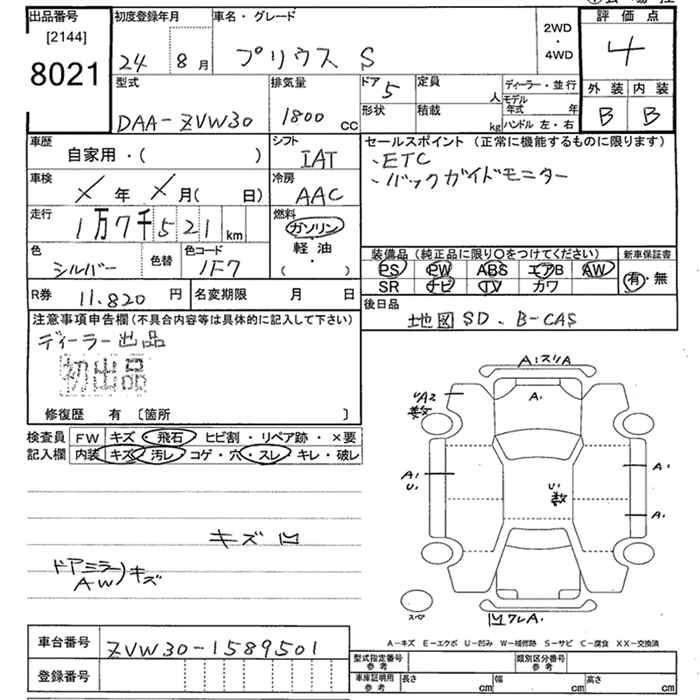 出品番号
[2144]
8021
初度登録年月
24 8月
車名・グレード
プリウス S
2WD
・
4WD
評価点
4
外装 内装
B B
型式
DAA-ZVW30
排気量
1800 cc
ドア 5
形状
定員
人
積載
kg
ディーラー・並行
モデル
年式 年
ハンドル 左・右
車歴
自家用・( )
シフト
IAT
車検
X 年 X 月( 日)
冷房
AAC
走行
1万7千521 km
燃料
ガソリン
軽油
( ・ )
色
シルバー
色替
色コード
1F7
R券 11.820 円
名変期限 月 日
セールスポイント(正常に機能するものに限ります)
、ETC
、バックガイドモニター
装備品(純正品に限り〇をつけてください)
PS PW ABS エアB AW
SR ナビ TV カワ
新車保証書
有・無
後日品
地図SD、B-CAS
注意事項申告欄(不具合内容等は具体的に記入して下さい)
ディーラー出品
初出品
修復歴 有 〔箇所 〕
検査員
記入欄
FW キズ・飛石・ヒビ割・リペア跡・×要
内装 キズ・汚レ・コゲ・穴・スレ・キレ・破レ
キズ凹
ドアミラー
AW
キズ
A:スリA
A.
UA2
A.
U.
U.
数
A.
A.
スペア
凹ワレA.
A-キズ E-エクボ U-凹み W-補修跡 S-サビ C-腐食 XX-交換済
車台番号 ZVW30-1589501
登録番号
型式指定番号
参考
類別区分番号
参考
車庫証明用
参考
長さ cm
幅 cm
高さ cm